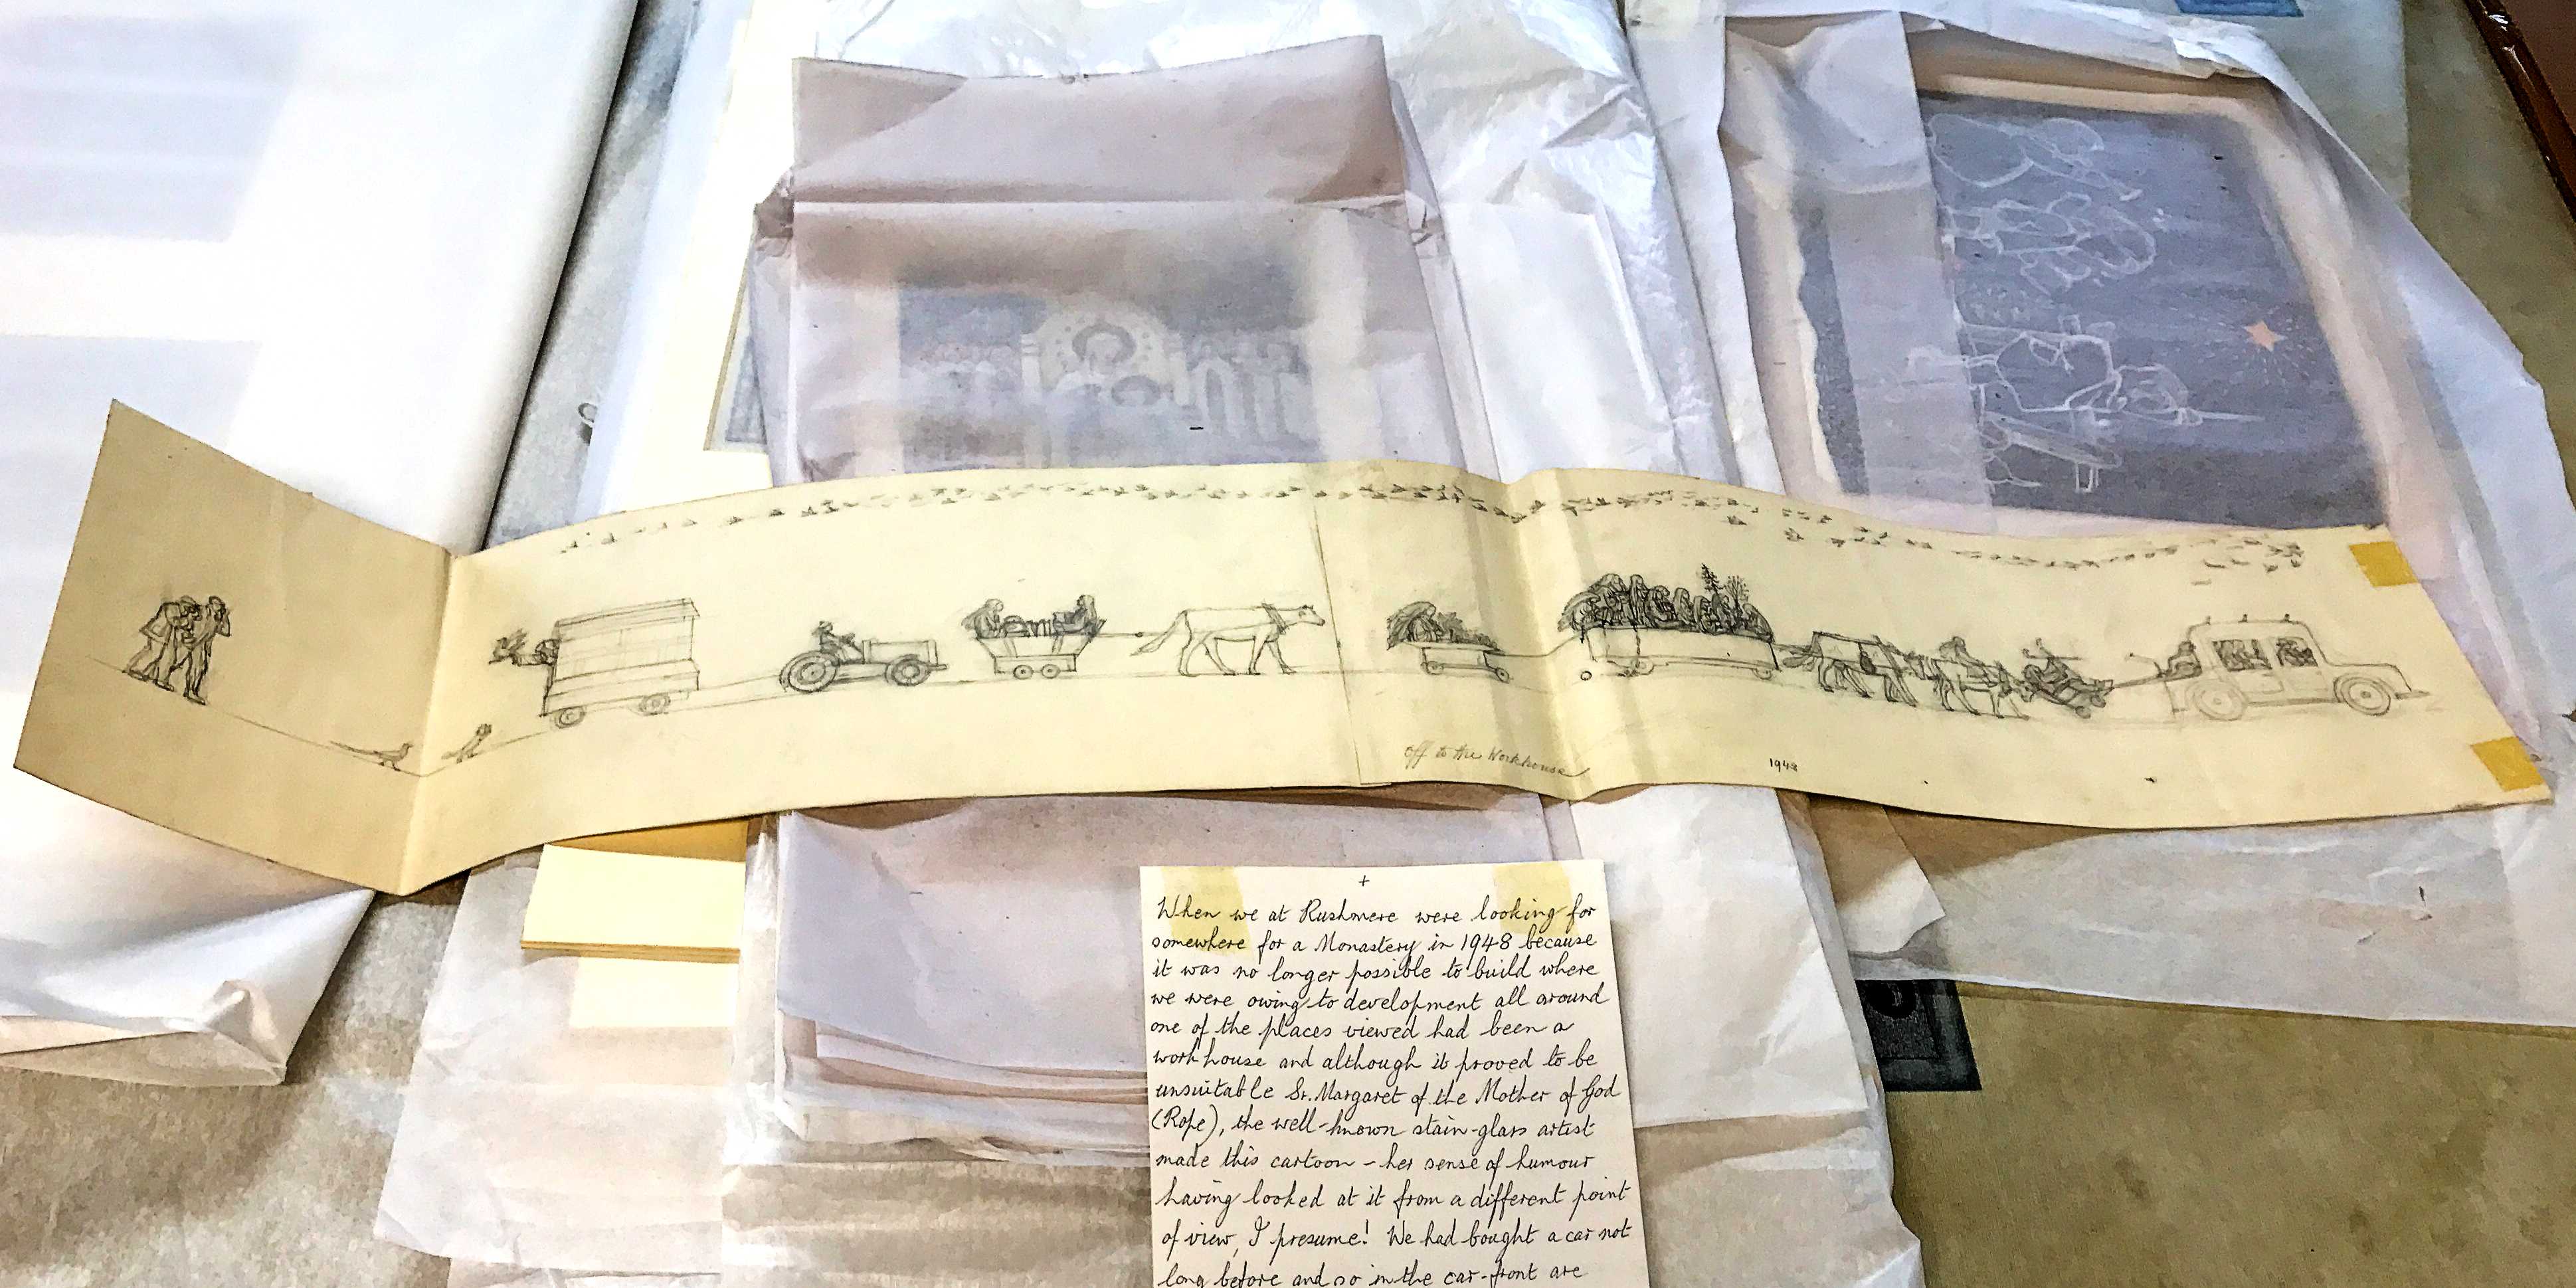 off to the Workhouse
1948
+
When we at Rushmere were looking for
somewhere for a Monastery in 1948 because
it was no longer possible to build where
we were owing to development all around
one of the places viewed had been a
workhouse and although it proved to be
unsuitable Sr. Margaret of the Mother of God
(Rope), the well-known stain-glass artist
made this cartoon - her sense of humour
having looked at it from a different point
of view, I presume! We had bought a car not
long before and so in the car-front are